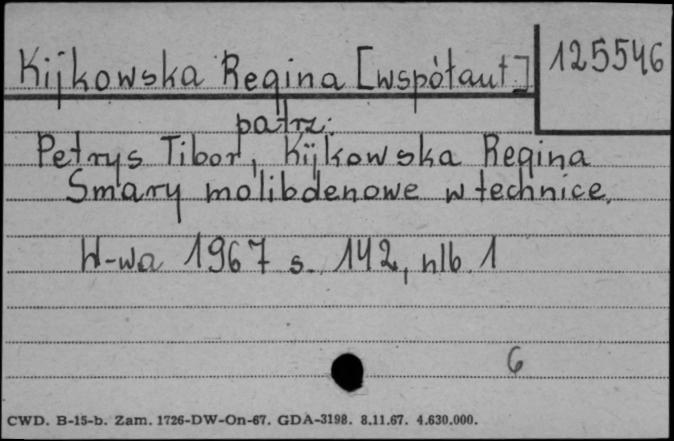 Kijkowska Regina [współaut.] 125546
patrz:
Petrys Tibor, Kijkowska Regina
Smary molibdenowe w technice.
W-wa 1967 s. 142, nlb. 1
6
CWD. B-15-b. Zam. 1726-DW-On-67. GDA-3198. 8.11.67. 4.630.000.